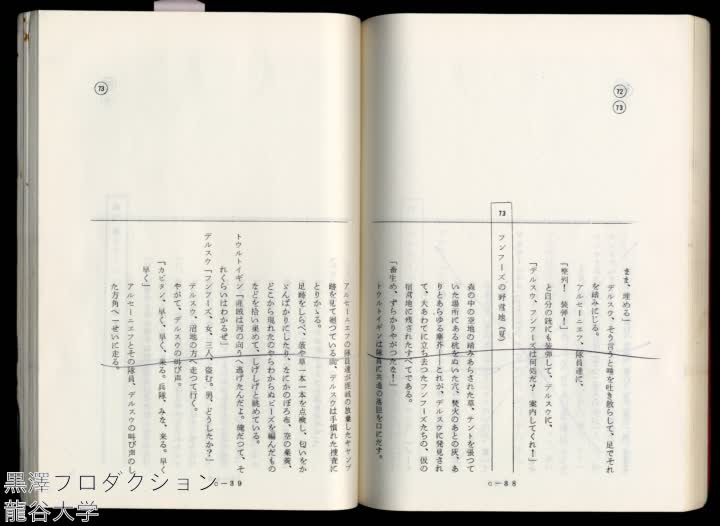 72
73
まま、埋める」
デルスウ、そう言うと唾を吐き散らして、足でそれ
を踏みにじる。
アルセーニエフ、隊員達に、
「整列！ 装弾！」
と自分の銃にも装弾して、デルスウに、
「デルスウ、フンフーズは何処だ？ 案内してくれ！」
73 フンフーズの野営地（夏）
森の中の空地の踏みあらされた草、テントを張って
いた場所にある杭をぬいた穴、焚火のあとの灰、あ
りとあらゆる塵芥――これが、デルスウに発見され
て、大あわてに立ち去ったフンフーズたちの、仮の
宿営地に残されたすべてである。
「畜生め、ずらかりやがったな！」
トウルトイギンは隊員に共通の落胆を口にだす。
C－88
73
アルセーニエフの隊員達が匪賊の放棄したキャンプ
跡を見て廻っている間、デルスウは手慣れた捜査に
とりかゝる。
足跡をしらべ、藁や草一本一本を点検し、匂いをか
どこから現れたのやらわからぬビーズを編んだもの
などを拾い集めて、しげしげと眺めている。
トウルトイギン「匪賊は河の向うへ逃げたんだよ。俺だって、そ
れくらいはわかるぜ」
デルスウ「フンフーズ、女、三人、盗む。男、どうしたか？」
デルスウ、沼地の方へ走って行く。
やがて、デルスウの叫び声。
「カピタン、早く、早く、来る。兵隊、みな、来る。早く
早く」
アルセーニエフとその隊員、デルスウの叫び声のし
た方角へ一せいに走る。
C－89
黒澤プロダクション
龍谷大学